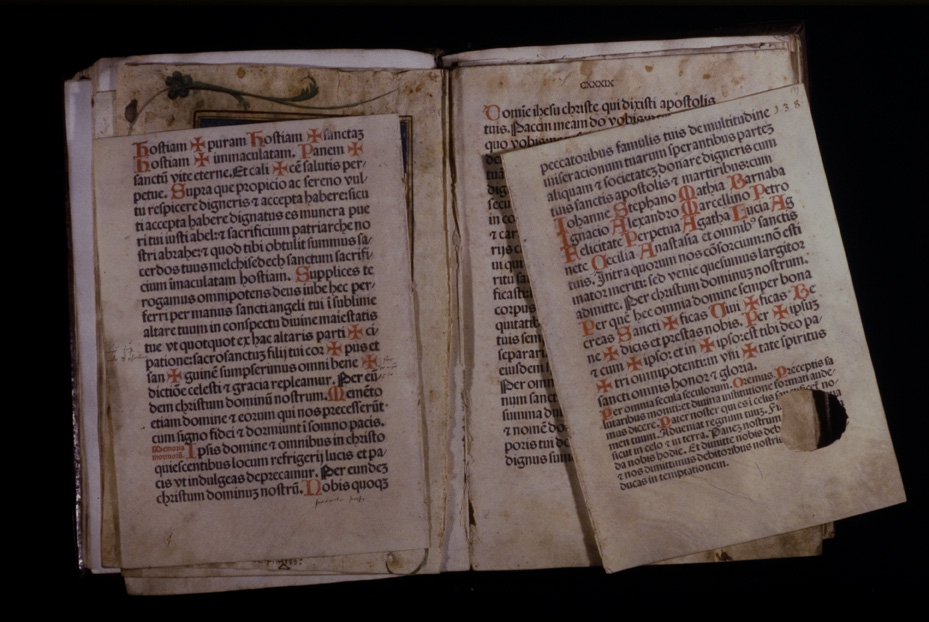 hostiam ✠ puram hostiam ✠ sanctaʒ
hostiam ✠ immaculatam. Panem ✠
sanctū vite eterne. Et cali ✠ cē salutis per-
petue. Supra que propicio ac sereno vul-
tu respicere digneris ⁊ accepta habere: sicu
ti accepta habere dignatus es munera pue
ri tui iusti abel: ⁊ sacrificium patriarche no
stri abrahe: ⁊ quod tibi obtulit summus sa-
cerdos tuus melchisedech sanctum sacrifi-
cium īmaculatam hostiam. Supplices te
rogamus omnipotens deus iube hec per-
ferri per manus sancti angeli tui ī sublime
altare tuum in conspectu divine maiestatis
tue vt quotquot ex hac altaris parti ✠ ci-
patione: sacrosanctuʒ filij tui cor ✠ pus et
san ✠ guinē sumpserimus omni bene ✠
dictiōe celesti ⁊ gracia repleamur. Per eū-
dem christum dominū nostrum. Memēto
etiam domine ⁊ eorum qui nos precesserūt
cum signo fidei ⁊ dormiunt ī somno pacis.
Ipsis domine ⁊ omnibus in christo
quiescentibus locum refrigerij lucis et pa-
cis vt indulgeas deprecamur. Per eundeʒ
christum dominuʒ nostrū. Nobis quoqʒ
CXXXIX
Domīe ihesu christe qui dixisti apostolis
tuis. Pacem meam do vobis
quo vobis
secu
in co
⁊ car
rijs
ui qui
ritu sa
ficasti:
corpus
quitatib
tuis sem
separari
eiusdem
Per omn
num sanct
summa
⁊ nomē do
poris tui de
dignus sum
138
peccatoribus famulis tuis de multitudine
miseracionum tuarum sperantibus parteʒ
aliquam ⁊ societateʒ donare digneris cum
tuis sanctis apostolis ⁊ martiribus: cum
Iohanne Stephano Mathia Barnaba
Ignacio Alexandro Marcellino Petro
Felicitate Perpetua Agatha Lucia Ag
nete Cecilia Anastasia et omnibꝰ sanctis
tuis. Intra quorum nos cōsorcium: nō esti
mator meriti: sed venie quesumus largitor
admitte. Per christum dominuʒ nostrum.
Per quē hec omnia domine semper bona
creas Sancti ✠ ficas Uiui ✠ ficas Be
ne ✠ dicis et prestas nobis. Per ✠ ipsuʒ
⁊ cum ✠ ipso: et in ✠ ipso: est tibi deo pa-
✠ tri omnipotenti: in vni ✠ tate spiritus
sancti omnis honor ⁊ gloria.
Per omnia secula seculorum. Oremus. Preceptis sa
lutaribus moniti: et divina institutione formati aude-
mus dicere. Pater noster qui es ī celis sanctificet no-
men tuum. Adueniat regnum tuuʒ. Fi
in celo ⁊ in terra. Paneʒ nostrum
da nobis hodie. Et dimitte nobis deb
⁊ nos dimittimus debitoribus nostri
ducas in temptationem.